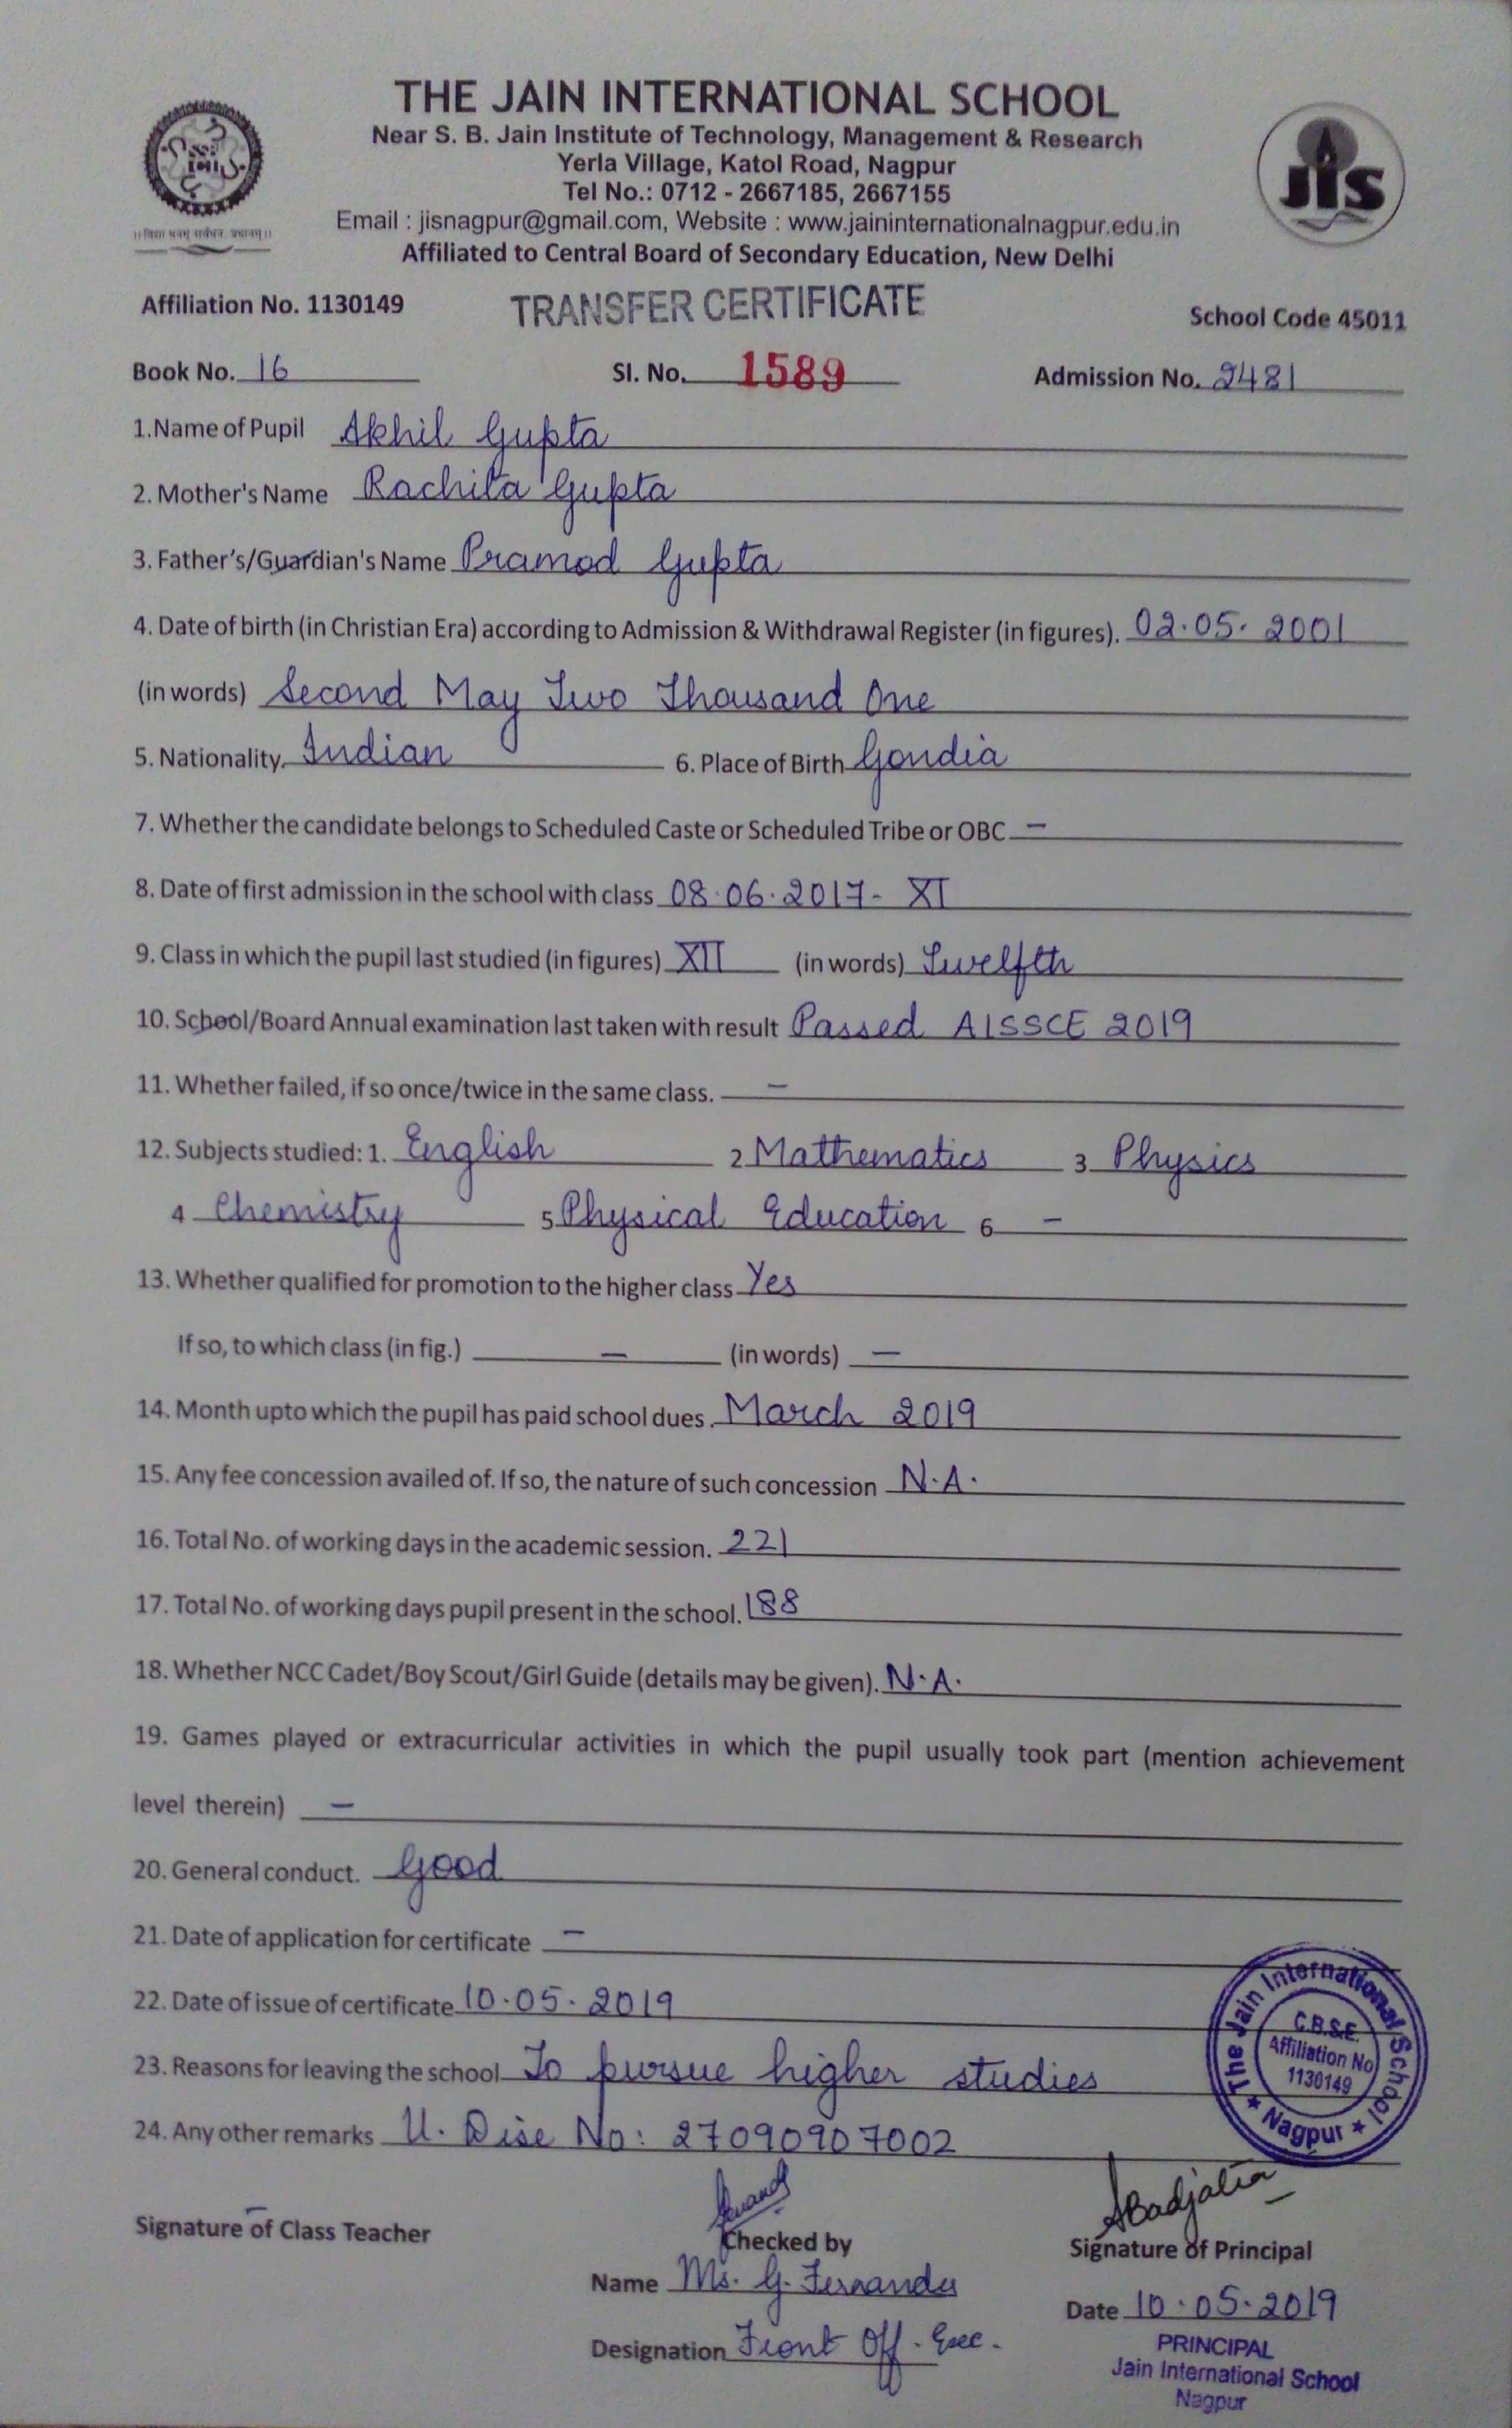 THE JAIN INTERNATIONAL SCHOOL
Near S. B. Jain Institute of Technology, Management & Research
Yerla Village, Katol Road, Nagpur
Tel No.: 0712 - 2667185, 2667155
Email : jisnagpur@gmail.com, Website : www.jaininternationalnagpur.edu.in
Affiliated to Central Board of Secondary Education, New Delhi
jis
Affiliation No. 1130149 TRANSFER CERTIFICATE School Code 45011
Book No. 16 Sl. No. 1589 Admission No. 2481
1.Name of Pupil Akhil Gupta
2. Mother's Name Rachita Gupta
3. Father's/Guardian's Name Pramod Gupta
4. Date of birth (in Christian Era) according to Admission & Withdrawal Register (in figures). 02.05.2001
(in words) Second May Two Thousand One
5. Nationality. Indian 6. Place of Birth Gondia
7. Whether the candidate belongs to Scheduled Caste or Scheduled Tribe or OBC –
8. Date of first admission in the school with class 08.06.2017- XI
9. Class in which the pupil last studied (in figures) XII (in words) Twelfth
10. School/Board Annual examination last taken with result Passed AISSCE 2019
11. Whether failed, if so once/twice in the same class. –
12. Subjects studied: 1. English 2 Mathematics 3 Physics
4 Chemistry 5 Physical Education 6 –
13. Whether qualified for promotion to the higher class Yes
If so, to which class (in fig.) – (in words) –
14. Month upto which the pupil has paid school dues. March 2019
15. Any fee concession availed of. If so, the nature of such concession N.A.
16. Total No. of working days in the academic session. 221
17. Total No. of working days pupil present in the school. 188
18. Whether NCC Cadet/Boy Scout/Girl Guide (details may be given). N.A.
19. Games played or extracurricular activities in which the pupil usually took part (mention achievement
level therein) –
20. General conduct. Good
21. Date of application for certificate –
22. Date of issue of certificate 10.05.2019
23. Reasons for leaving the school To pursue higher studies
24. Any other remarks U. Dise No: 27090907002
The Jain International School
★ Nagpur ★
C.B.S.E.
Affiliation No
1130149
Signature of Class Teacher – Checked by Signature of Principal
Name Ms. G. Fernandes
Date 10.05.2019
Designation Front Off. Exec.
PRINCIPAL
Jain International School
Nagpur